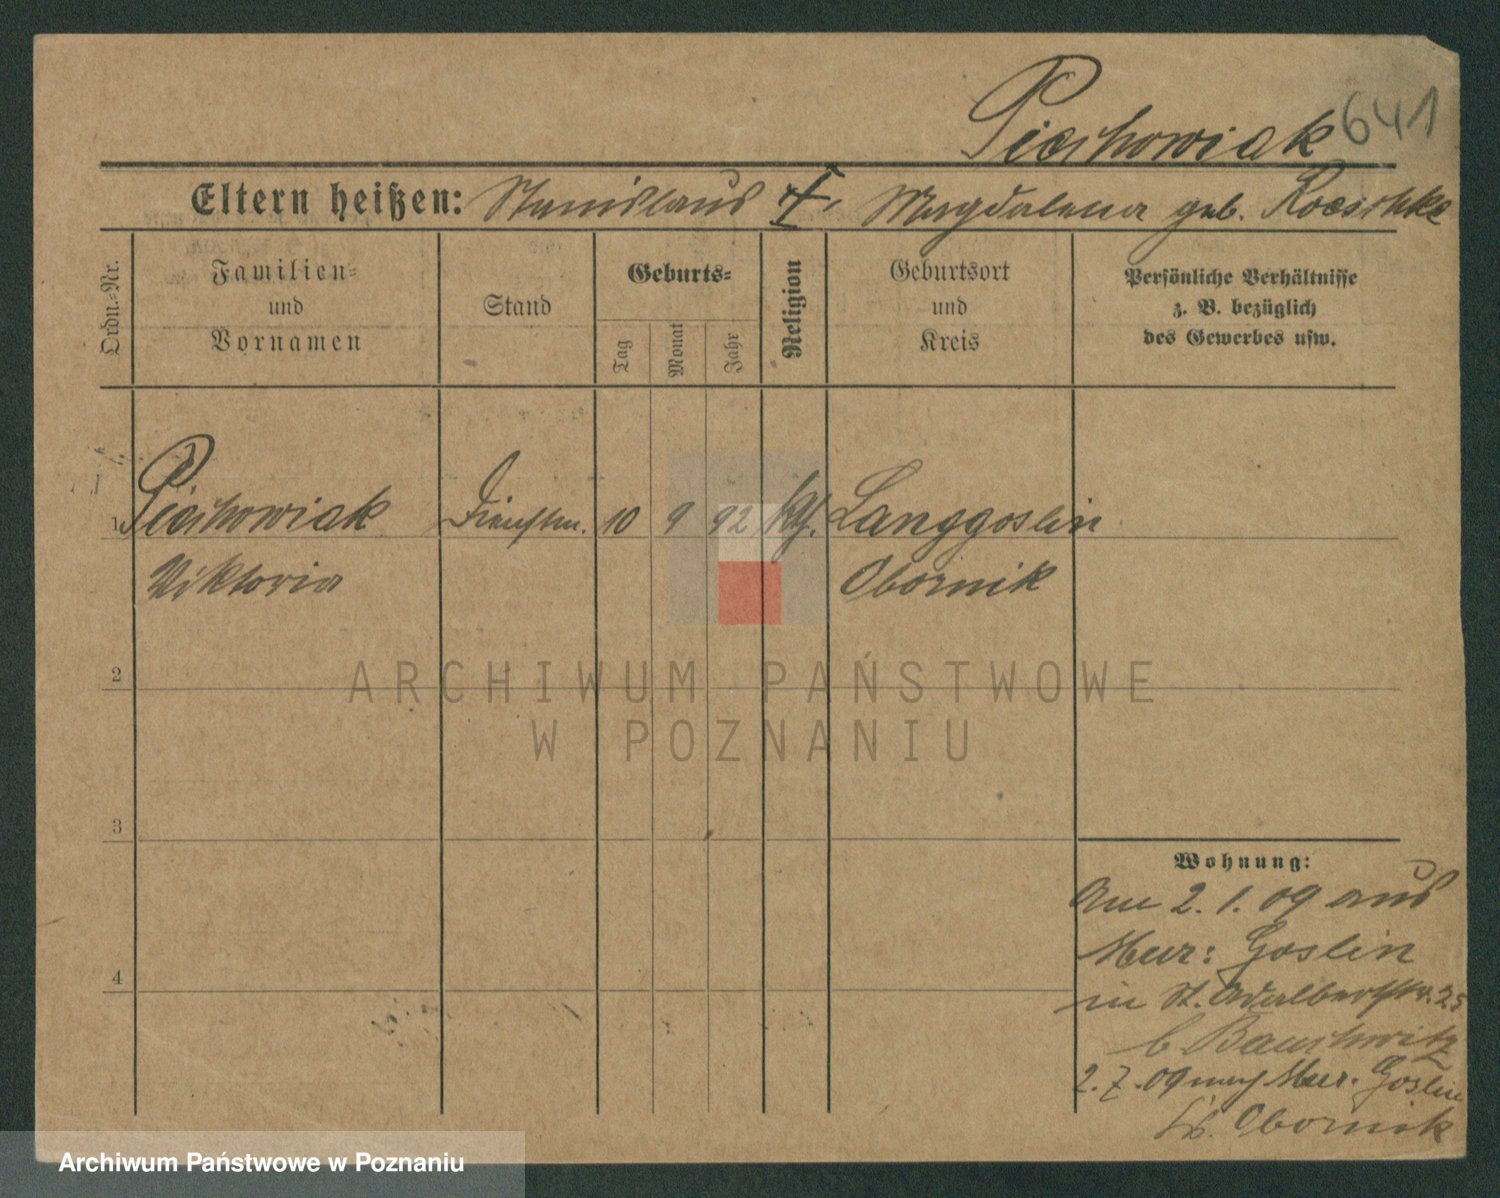 Piechowiak 641
Eltern heißen: Stanislaus †, Magdalena geb.
Ordn.-Nr.
Familien-
und
Vornamen
Stand
Geburts-
Tag
Monat
Jahr
Religion
Geburtsort
und
Kreis
Persönliche Verhältnisse
z. B. bezüglich
des Gewerbes usw.
1 Piechowiak Dienstm. 10 9 92 kth. Langgoslin
Viktoria Obornik
2
ARCHIWUM PAŃSTWOWE
W POZNANIU
3
Wohnung:
Am 2.1.09 aus
Mur: Goslin
in St. Adalbertstr. 25
b
4
2.7.09 nach Mur. Goslin
Obornik
Archiwum Państwowe w Poznaniu